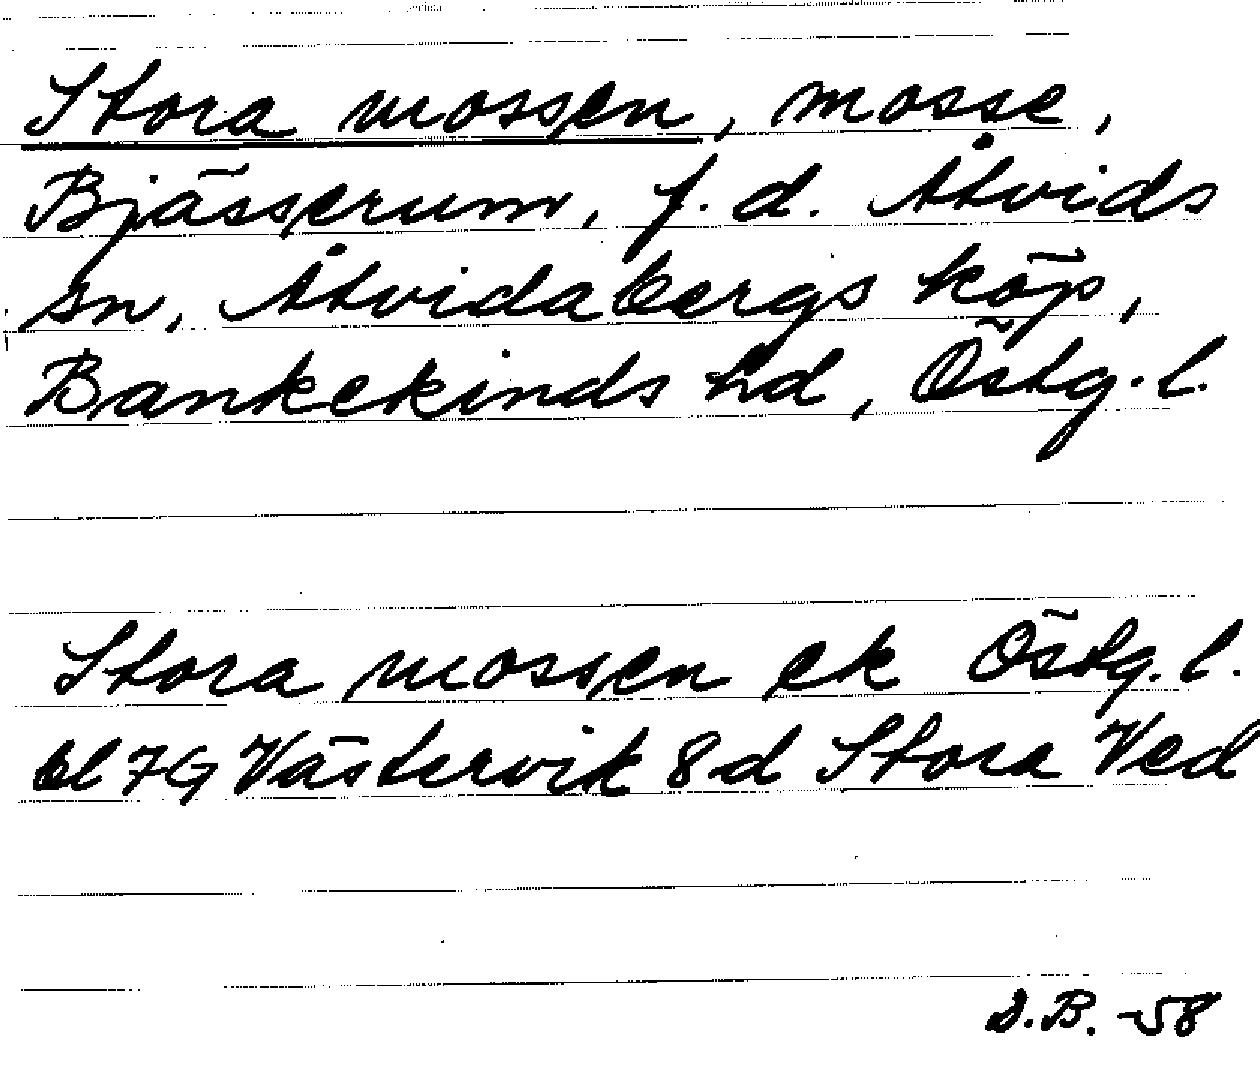 Stora mossen, mosse,
Bjässerum, f.d. Åtvids
sn, Åtvidabergs köp,
Bankekinds hd, Östg.l.
Stora mossen ek Östg.l.
bl 7G Västervik 8d Stora Ved
D.B. -58